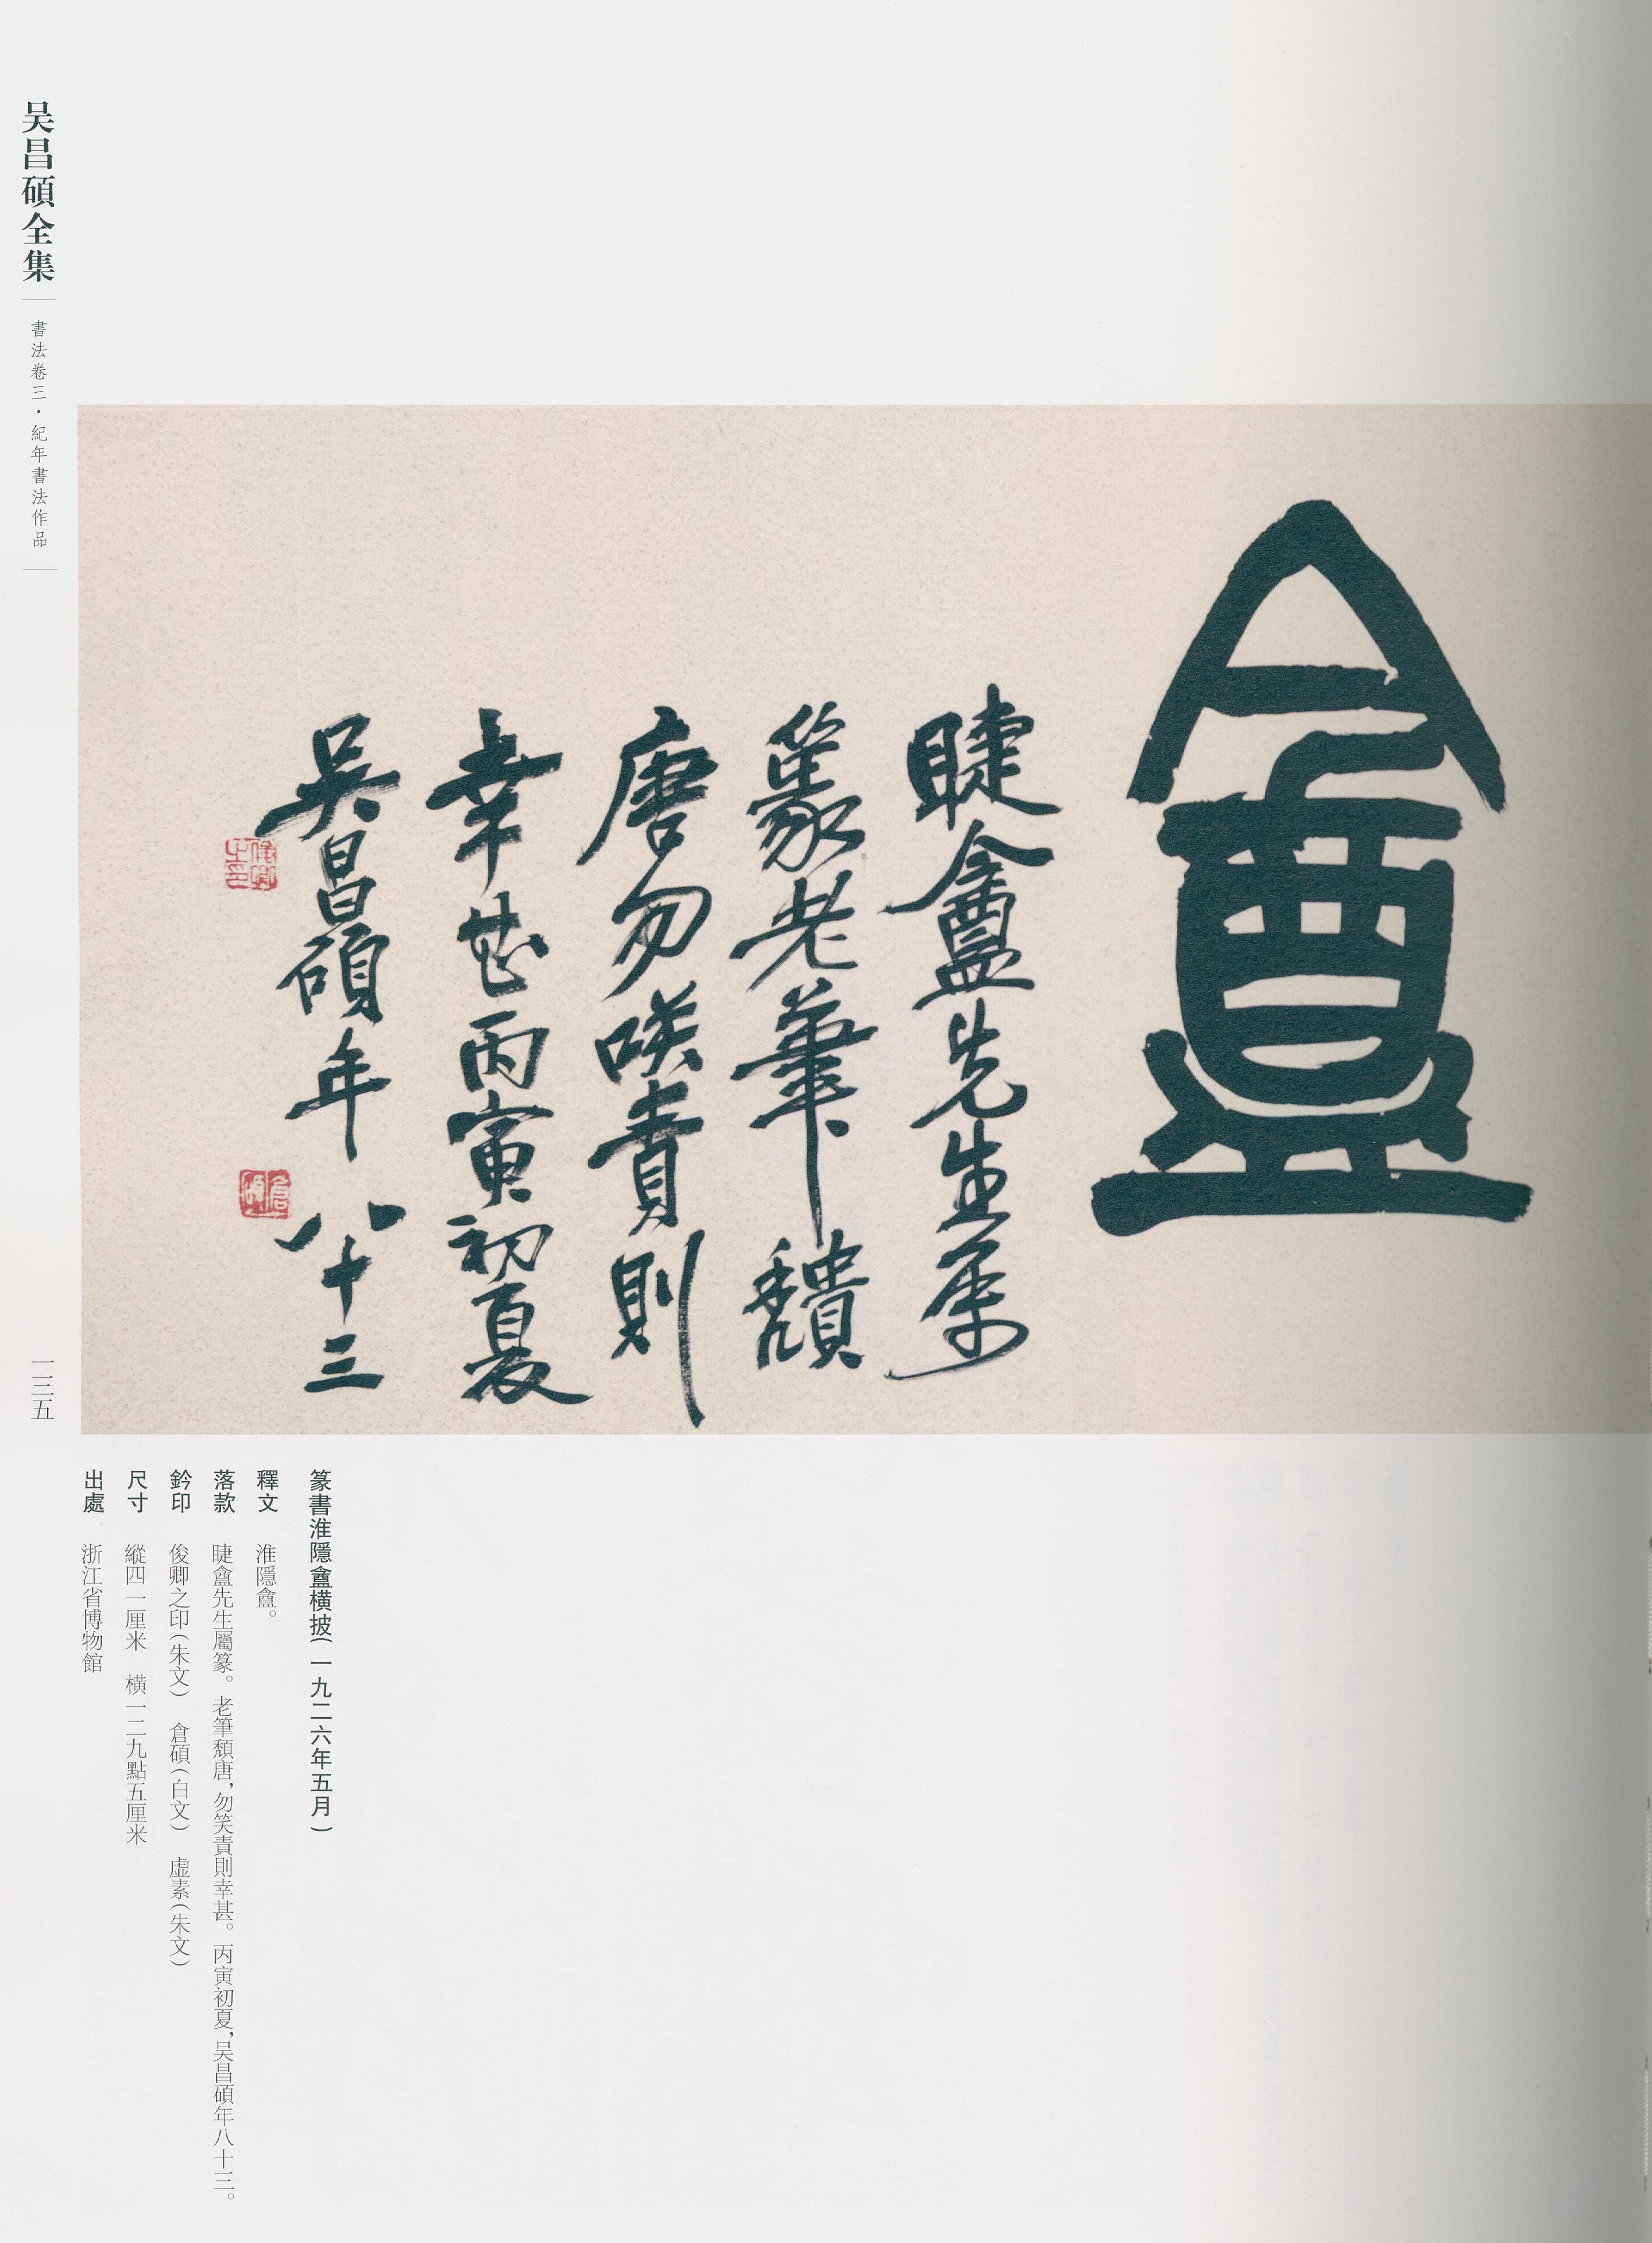 盦
睫盦先生属
篆老筆頹
唐勿咲責則
幸甚丙寅初夏
吳昌碩年八十三
俊卿之印
倉碩
篆書淮隱盦横披(一九二六年五月)
釋文 淮隱盦。
落款 睫盦先生屬篆。老筆頽唐,勿笑責則幸甚。丙寅初夏,吴昌碩年八十三。
鈐印 俊卿之印(朱文) 倉碩(白文) 虚素(朱文)
尺寸 縱四一厘米 橫一二九點五厘米
出處 浙江省博物館
吴昌碩全集
書法卷三·紀年書法作品
一三五